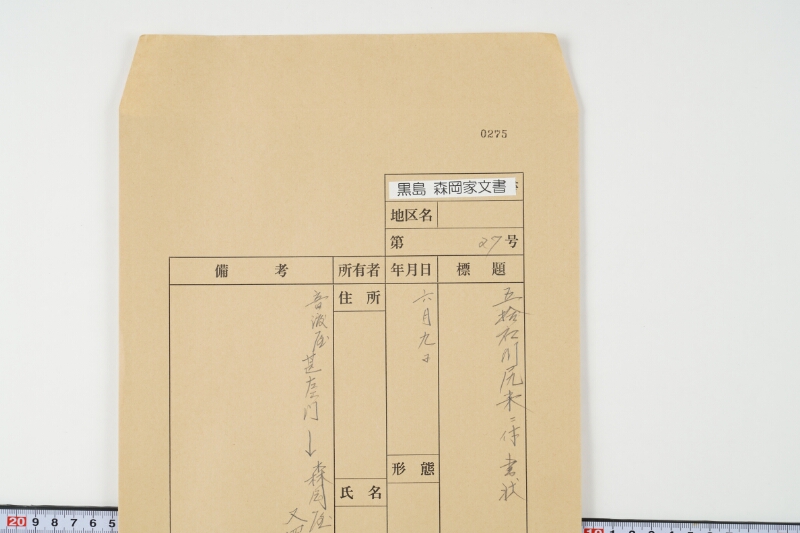 0275
黒島 森岡家文書
地区名
第 27 号
標題
年月日
所有者
備考
五拾石川尻米ニ付書状
六月九日
形態
住所
氏名
音波屋甚左門→森岡屋
又四
20 9 8 7 6 5
10 1 2 3 4 5 6 7 8 9